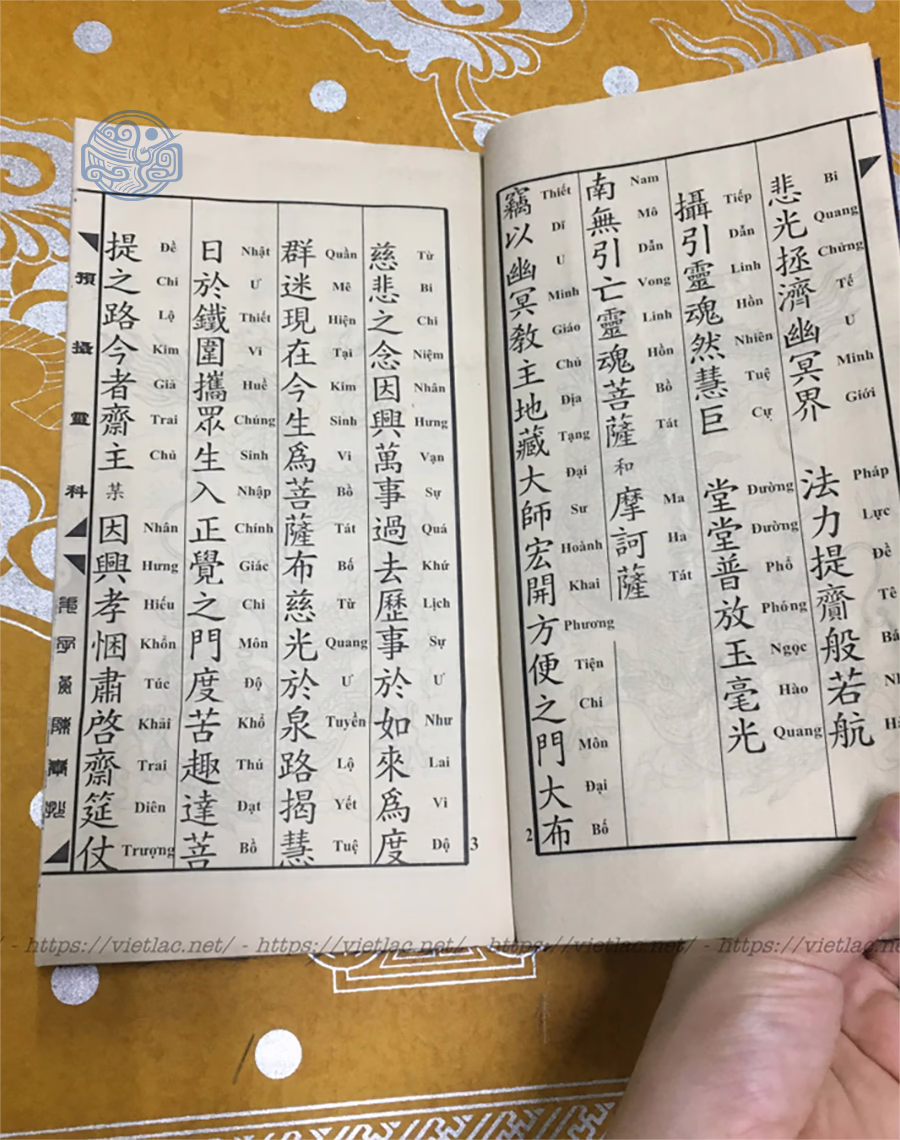 悲光拯濟幽冥界 法力提齎般若航
Bi Quang Chứng Tế U Minh Giới Pháp Lực Đề Tê
攝引靈魂然慧巨 堂堂普放玉毫光
Tiếp Dẫn Linh Hồn Nhiên Tuệ Cự Đường Đường Phổ Phóng Ngọc Hào Quang
南無引亡靈魂菩薩 和 摩訶薩
Nam Mô Dẫn Vong Linh Hồn Bồ Tát Ma Ha Tát
竊以幽冥教主地藏大師宏開方便之門大布
Thiết Dĩ U Minh Giáo Chủ Địa Tạng Đại Sư Hoành Khai Phương Tiện Chi Môn Đại Bố
2
慈悲之念因興萬事過去歷事於如來爲度
Từ Bi Chi Niệm Nhân Hưng Vạn Sự Quá Khứ Lịch Sự Ư Như Lai Vi Độ
群迷現在今生爲菩薩布慈光於泉路揭慧
Quần Mê Hiện Tại Kim Sinh Vi Bồ Tát Bố Từ Quang Ư Tuyền Lộ Yết Tuệ
日於鐵圍攜眾生入正覺之門度苦趣達菩
Nhật Ư Thiết Vi Huề Chúng Sinh Nhập Chính Giác Chi Môn Độ Khổ Thú Đạt Bồ
提之路今者齋主 某 因興孝悃肅啓齋筵仗
Đề Chi Lộ Kim Giả Trai Chủ Nhân Hưng Hiếu Khổn Túc Khải Trai Diên Trượng
3
預攝靈科
- https://vietlac.net/ - https://vietlac.net/ - https://vietlac.net/ - https://vietlac.net/